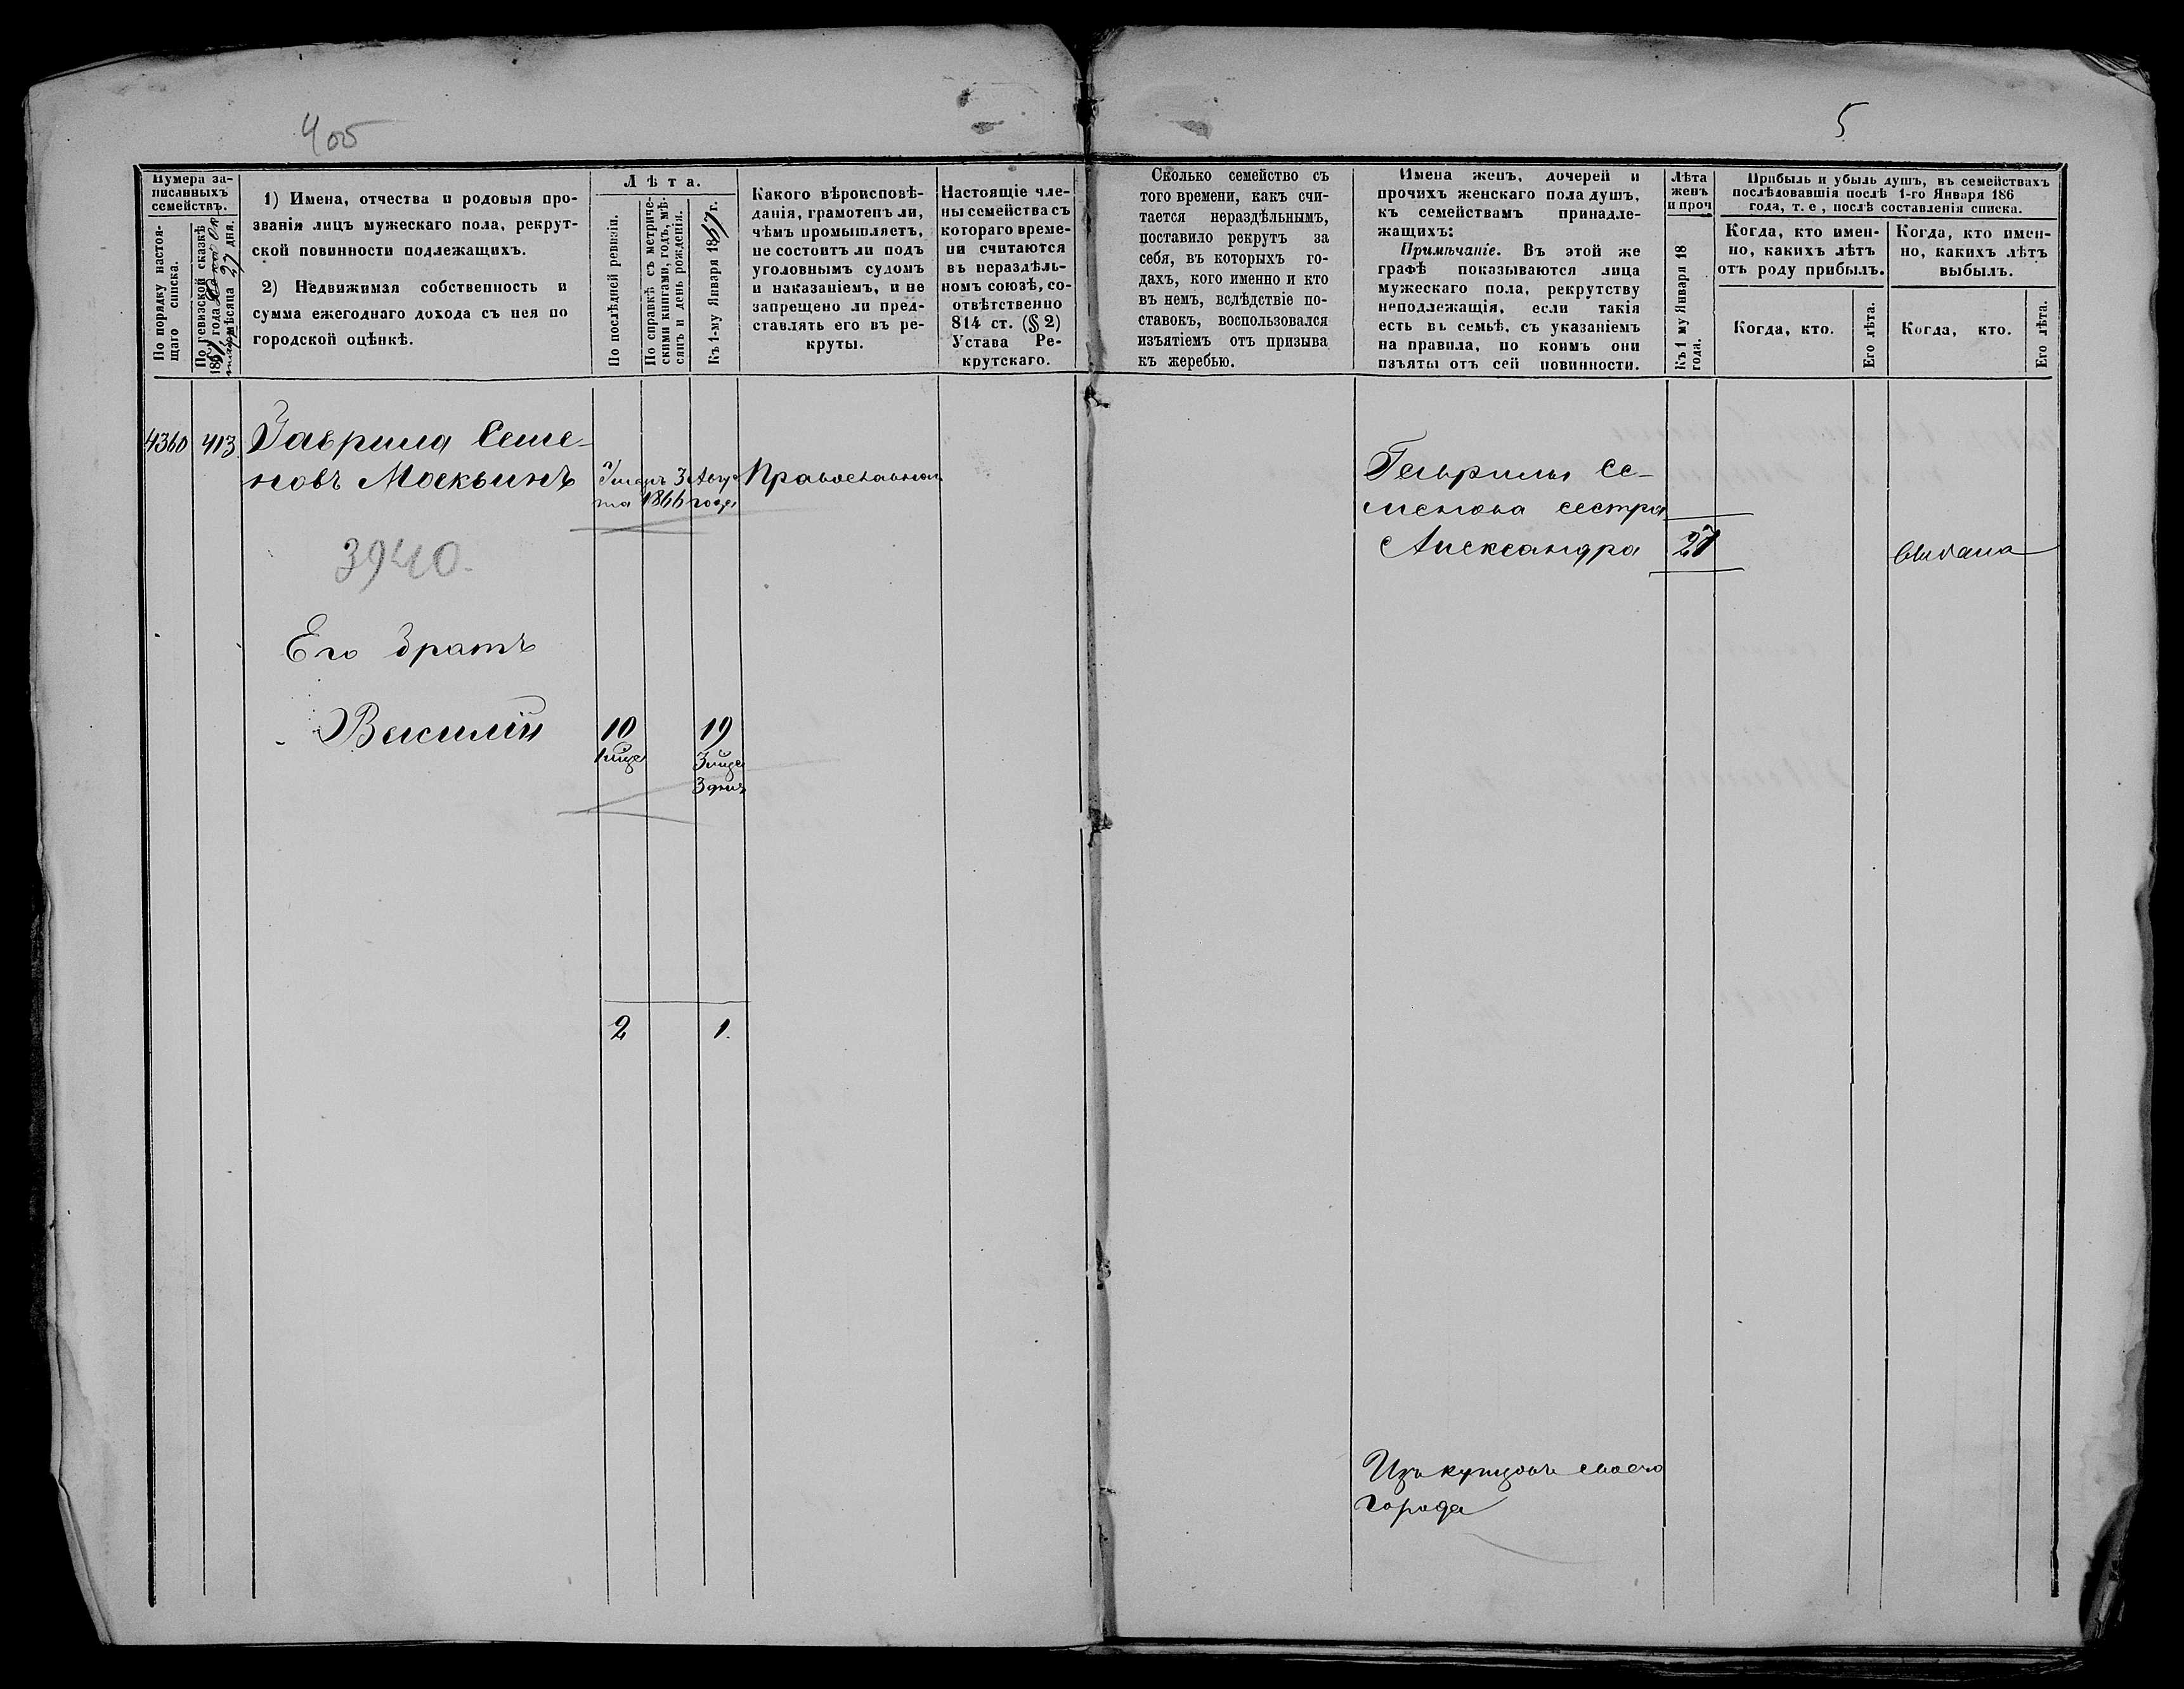 405
5
Нумера за-
писанныхъ
семействъ.
По порядку настоя-
щаго списка.
По ревизской сказкѣ
185 года
мѣсяца 27 дня.
1) Имена, отчества и родовыя про-
званія лицъ мужескаго пола, рекрут-
ской повинности подлежащихъ.
2) Недвижимая собственность и
сумма ежегоднаго дохода съ нея по
городской оцѣнкѣ.
Лѣта.
По послѣдней ревизіи.
По справкѣ съ метриче-
скими книгами, годъ, мѣ-
сяцъ и день рожденія.
Къ 1-му Января 1867 г.
Какого вѣроисповѣ-
данія, грамотенъ ли,
чѣмъ промышляетъ,
не состоитъ ли подъ
уголовнымъ судомъ
и наказаніемъ, и не
запрещено ли пред-
ставлять его въ ре-
круты.
Настоящіе чле-
ны семейства съ
котораго време-
ни считаются
въ нераздѣль-
номъ союзѣ, со-
отвѣтственно
814 ст. (§ 2)
Устава Ре-
крутскаго.
Сколько семейство съ
того времени, какъ счи-
тается нераздѣльнымъ,
поставило рекрутъ за
себя, въ которыхъ го-
дахъ, кого именно и кто
въ немъ, вслѣдствіе по-
ставокъ, воспользовался
изъятіемъ отъ призыва
къ жеребью.
Имена женъ, дочерей и
прочихъ женскаго пола душъ,
къ семействамъ принадле-
жащихъ:
Примѣчаніе. Въ этой же
графѣ показываются лица
мужескаго пола, рекрутству
неподлежащія, если такія
есть въ семьѣ, съ указаніемъ
на правила, по коимъ они
изъяты отъ сей повинности.
Лѣта
женъ
и проч
Къ 1 му Января 18
года.
Прибыль и убыль душъ, въ семействахъ
послѣдовавшія послѣ 1-го Января 186
года, т. е, послѣ составленія списка.
Когда, кто имен-
но, какихъ лѣтъ
отъ роду прибылъ.
Когда, кто.
Его лѣта.
Когда, кто имен-
но, какихъ лѣтъ
выбылъ.
Когда, кто.
Его лѣта.
4360 413 Гаврила Семе-
новъ Москвинъ
Умеръ 3 Авгус
та 1866 года
Православнаго
3940.
Его братъ
Василій 10 19
1 мце 3 мце
3 дни
2 1.
Гаврилы Се-
менова сестра
Александра 27
выдана
Изъ купцовъ своего
города